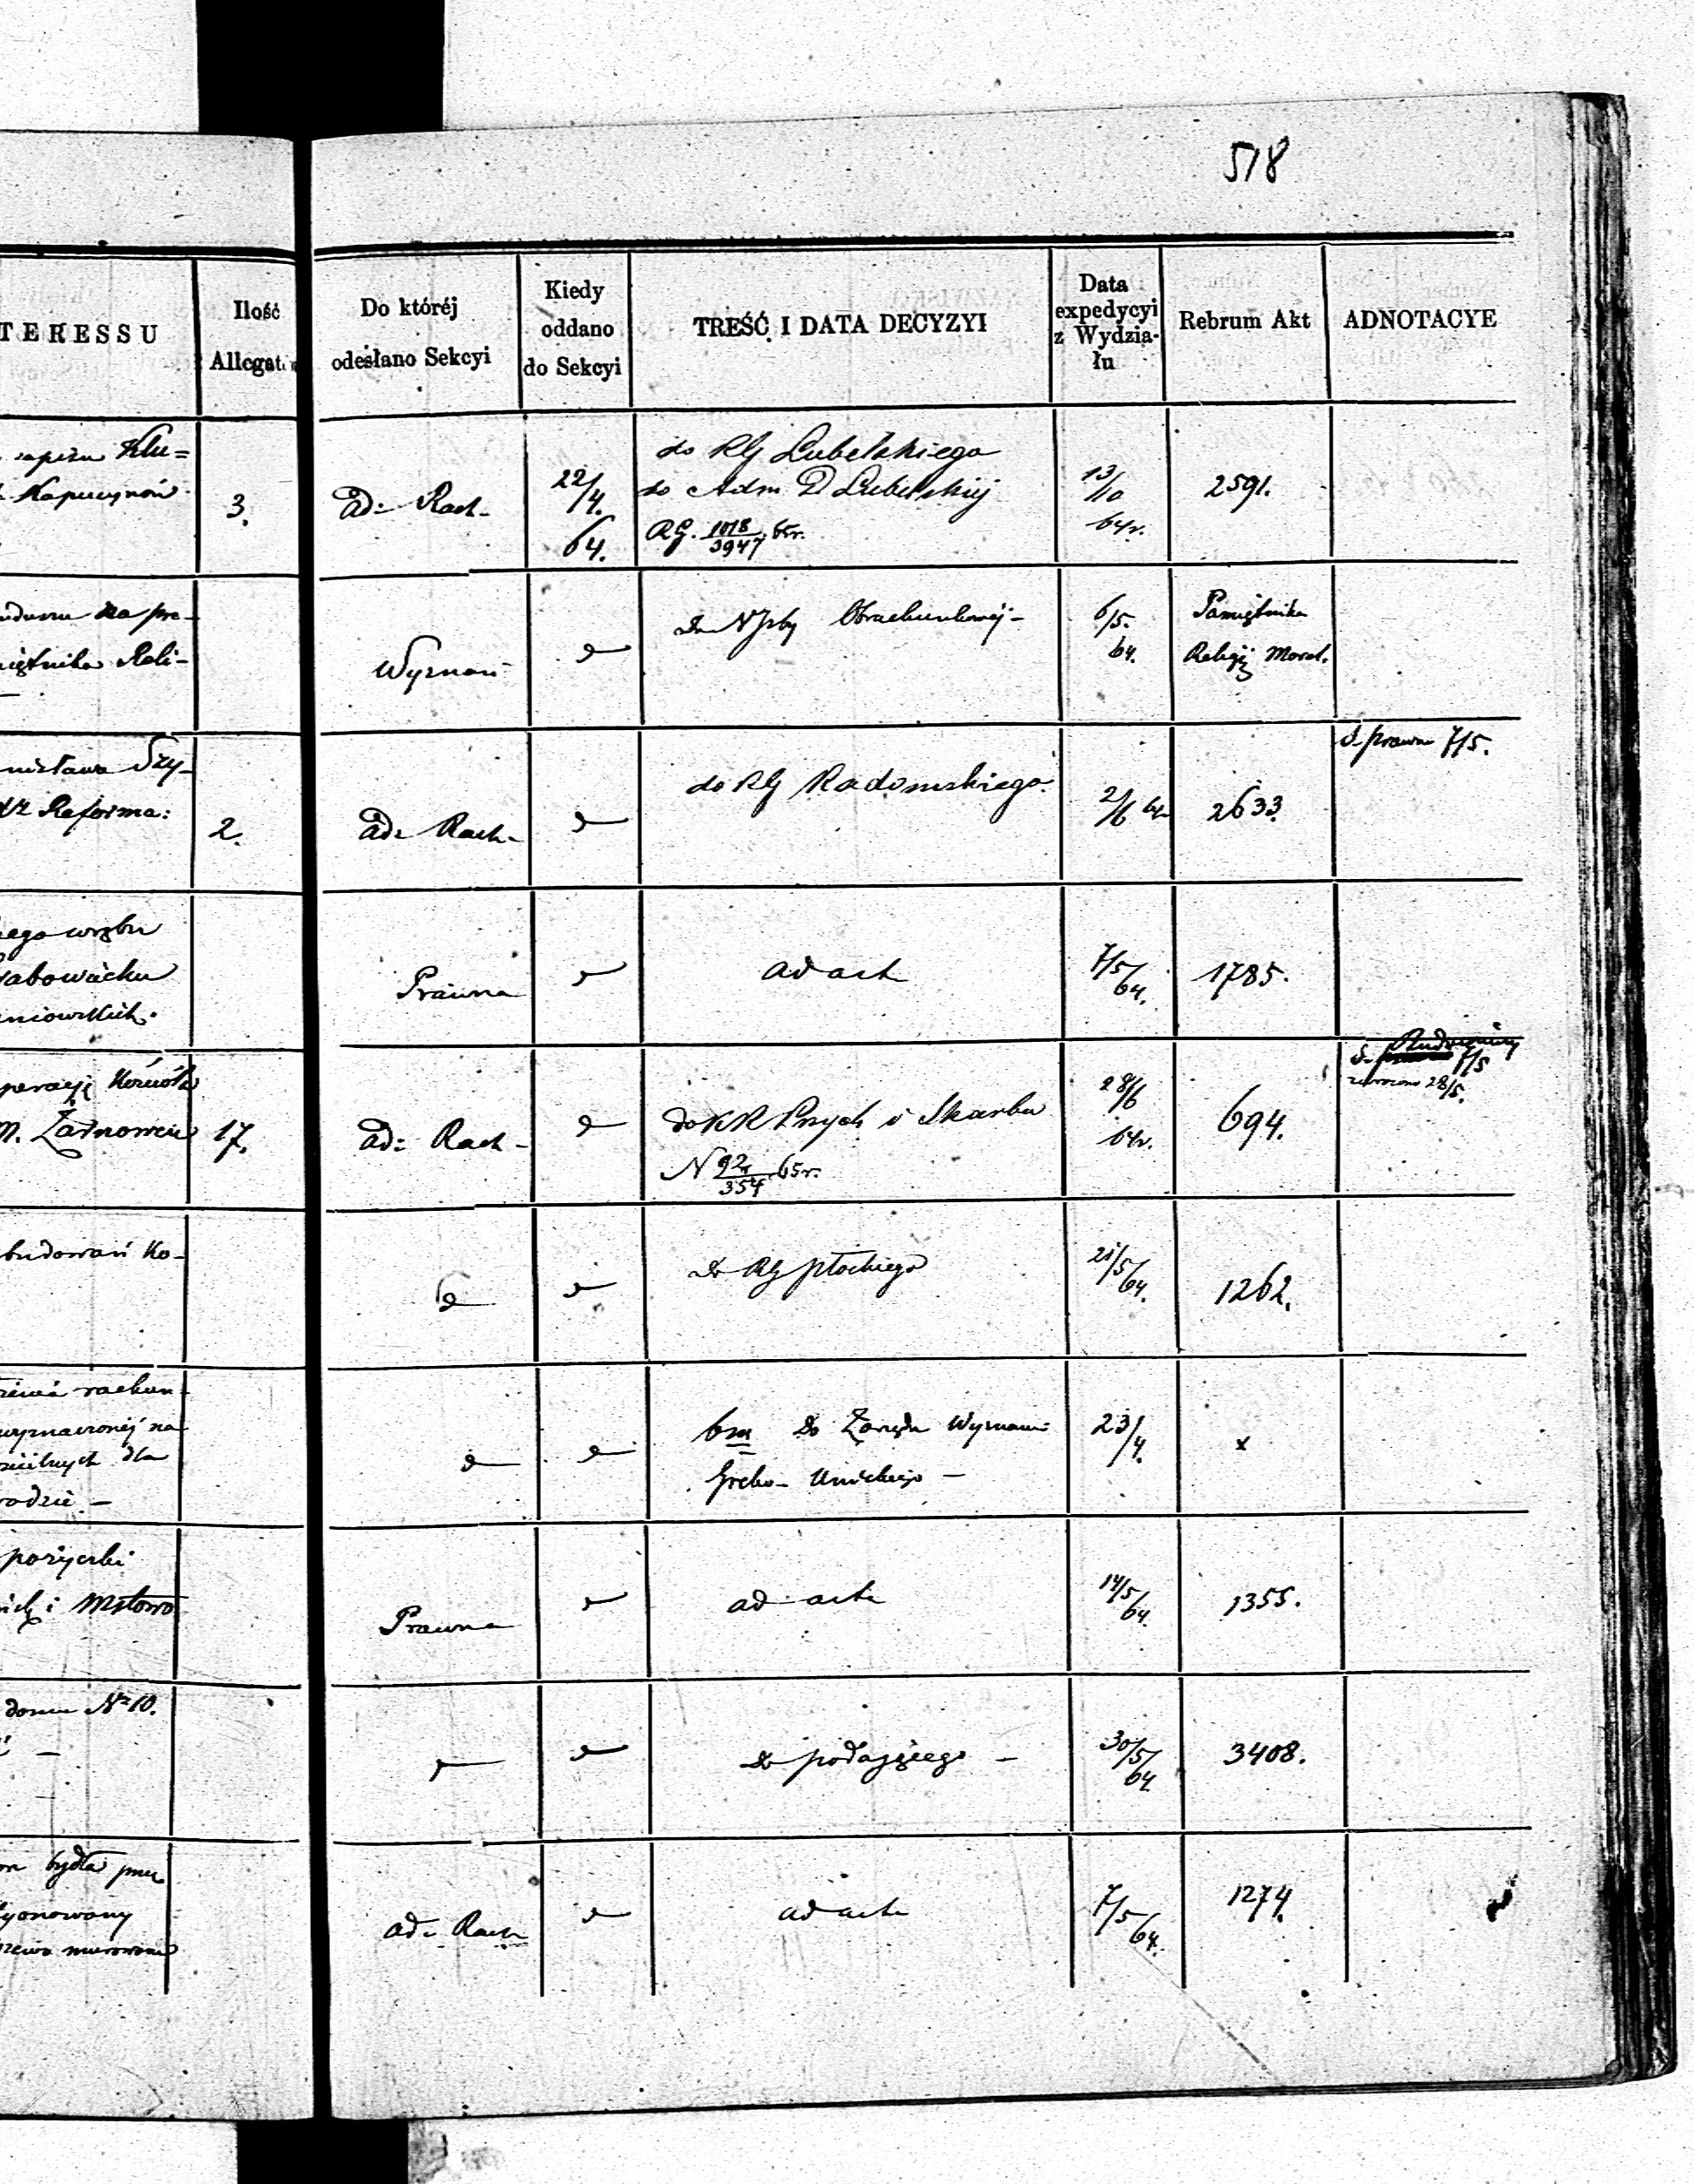 518
TERESSU
Ilość
Allegat.
Do któréj
odesłano Sekcyi
Kiedy
oddano
do Sekcyi
TREŚĆ I DATA DECYZYI
Data
expedycyi
z Wydzia-
łu
Rebrum Akt
ADNOTACYE
zapisu Klu=
Kapucynów
3.
ad: Rach-
22/4.
64.
do RG Lubelskiego
do Adm. D Lubelskiej
RG. 1018/3947 65r.
13/10
64r.
2591.
na pre-
miętnika Reli-
Wyznań
d
Do N Izby Obrachunkowéj -
6/5.
64.
Pamiętnika
Religij Moral.
nisława Szy-
Reforma:
2.
ad: Rach-
d
do RG Radomskiego.
2/6 64
2633.
S. prawna 7/5.
nego wrębu
rabowiecku
niowskich.
Prawna
d
ad acta
7/5/64.
1785.
peracyi Kościoła
m. Żarnowcu
17.
ad: Rach-
d
do KR Przych i Skarbu
N 92/354 65r.
28/6
64r.
694.
7/5
zwrócono 28/5.
budowań Ko-
d
d
do RG Płockiego
21/5/64.
1262.
rachun-
wyznaczonéj na
dla
rodzie. -
d
d
bm do Zarządu Wyznania
Greko-Unickiego -
23/4.
x
pożyczki
i Mstowo
Prawna
d
ad acta
14/5/64.
1355.
domu No 10.
d
d
do podającego -
30/5/64
3408.
bydła
murowane
ad: Rach
d
ad acta
7/5/64.
1274.